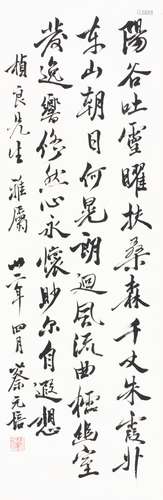 陽谷吐靈曜扶桑森千丈朱霞升
東山朝日何晃朗迴風流曲櫺幽室
發逸響悠然心永懷眇尔自遐想
楨良先生雅屬 廿一年四月 蔡元培